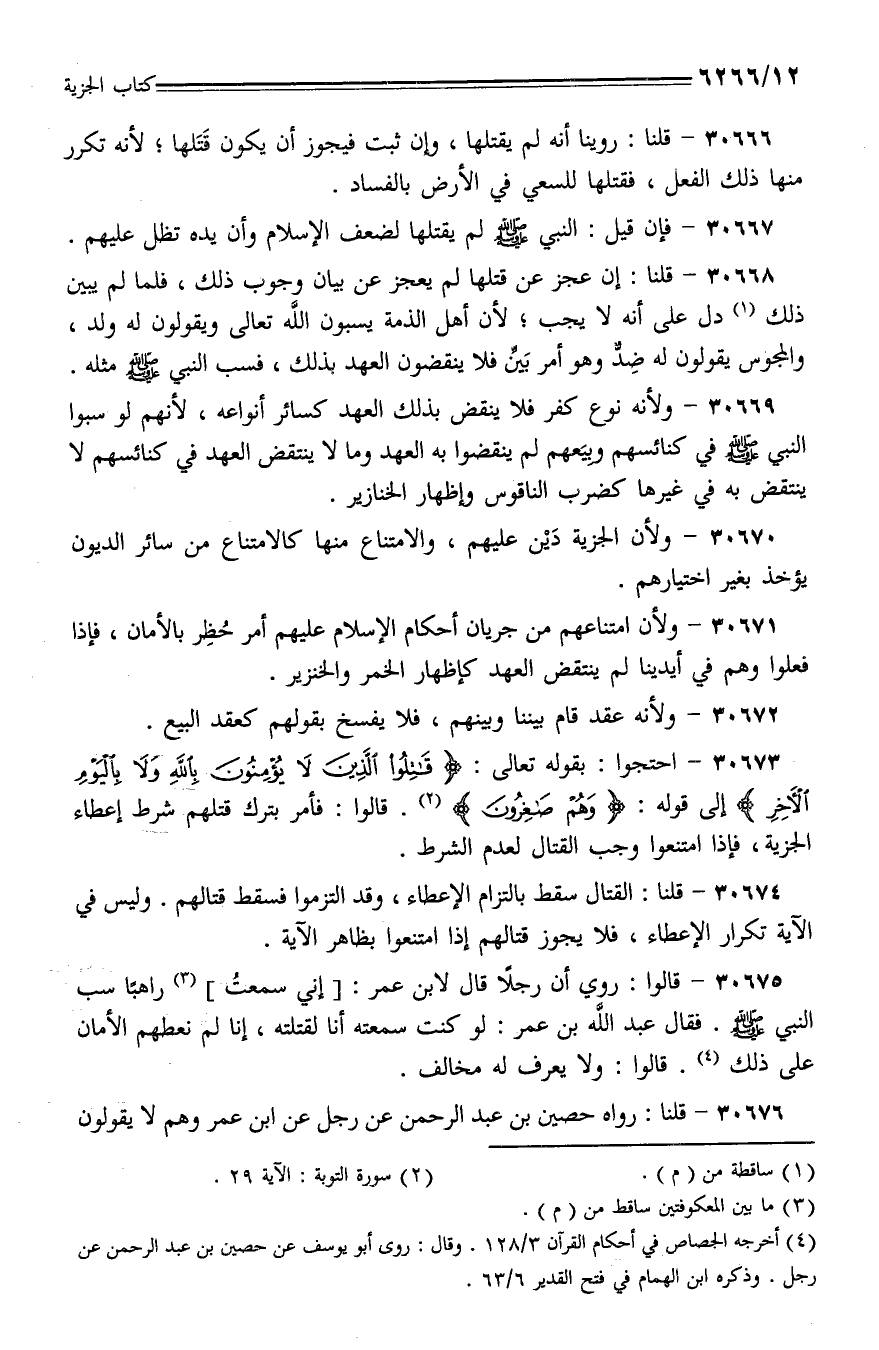 ٦٢٦٦/١٢ كتاب الجزية
٣٠٦٦٦ – قلنا : روينا أنه لم يقتلها ، وإن ثبت فيجوز أن يكون قَتَلها ؛ لأنه تكرر
منها ذلك الفعل ، فقتلها للسعي في الأرض بالفساد .
٣٠٦٦٧ – فإن قيل : النبي ﷺ لم يقتلها لضعف الإسلام وأن يده تظل عليهم .
٣٠٦٦٨ – قلنا : إن عجز عن قتلها لم يعجز عن بيان وجوب ذلك ، فلما لم يبين
ذلك (١) دل على أنه لا يجب ؛ لأن أهل الذمة يسبون اللَّه تعالى ويقولون له ولد ،
والمجوس يقولون له ضِدٌّ وهو أمر بَيِّنٌ فلا ينقضون العهد بذلك ، فسب النبي ﷺ مثله .
٣٠٦٦٩ – ولأنه نوع كفر فلا ينقض بذلك العهد كسائر أنواعه ، لأنهم لو سبوا
النبي ﷺ في كنائسهم وبِيَعهم لم ينقضوا به العهد وما لا ينتقض العهد في كنائسهم لا
ينتقض به في غيرها كضرب الناقوس وإظهار الخنازير .
٣٠٦٧٠ – ولأن الجزية دَيْن عليهم ، والامتناع منها كالامتناع من سائر الديون
يؤخذ بغير اختيارهم .
٣٠٦٧١ – ولأن امتناعهم من جريان أحكام الإسلام عليهم أمر حُظِر بالأمان ، فإذا
فعلوا وهم في أيدينا لم ينتقض العهد كإظهار الخمر والخنزير .
٣٠٦٧٢ – ولأنه عقد قام بيننا وبينهم ، فلا يفسخ بقولهم كعقد البيع .
٣٠٦٧٣ – احتجوا : بقوله تعالى : ﴿ قَـٰتِلُوا۟ ٱلَّذِينَ لَا يُؤْمِنُونَ بِٱللَّهِ وَلَا بِٱلْيَوْمِ
ٱلْـَٔاخِرِ ﴾ إلى قوله : ﴿ وَهُمْ صَـٰغِرُونَ ﴾ (٢) . قالوا : فأمر بترك قتلهم شرط إعطاء
الجزية ، فإذا امتنعوا وجب القتال لعدم الشرط .
٣٠٦٧٤ – قلنا : القتال سقط بالتزام الإعطاء ، وقد التزموا فسقط قتالهم . وليس في
الآية تكرار الإعطاء ، فلا يجوز قتالهم إذا امتنعوا بظاهر الآية .
٣٠٦٧٥ – قالوا : روي أن رجلًا قال لابن عمر : [ إني سمعتُ ] (٣) راهبًا سب
النبي ﷺ . فقال عبد اللَّه بن عمر : لو كنت سمعته أنا لقتلته ، إنا لم نعطهم الأمان
على ذلك (٤) . قالوا : ولا يعرف له مخالف .
٣٠٦٧٦ – قلنا : رواه حصين بن عبد الرحمن عن رجل عن ابن عمر وهم لا يقولون
(١) ساقطة من ( م ) . (٢) سورة التوبة : الآية ٢٩ .
(٣) ما بين المعكوفتين ساقط من ( م ) .
(٤) أخرجه الجصاص في أحكام القرآن ١٢٨/٣ . وقال : روى أبو يوسف عن حصين بن عبد الرحمن عن
رجل . وذكره ابن الهمام في فتح القدير ٦٣/٦ .